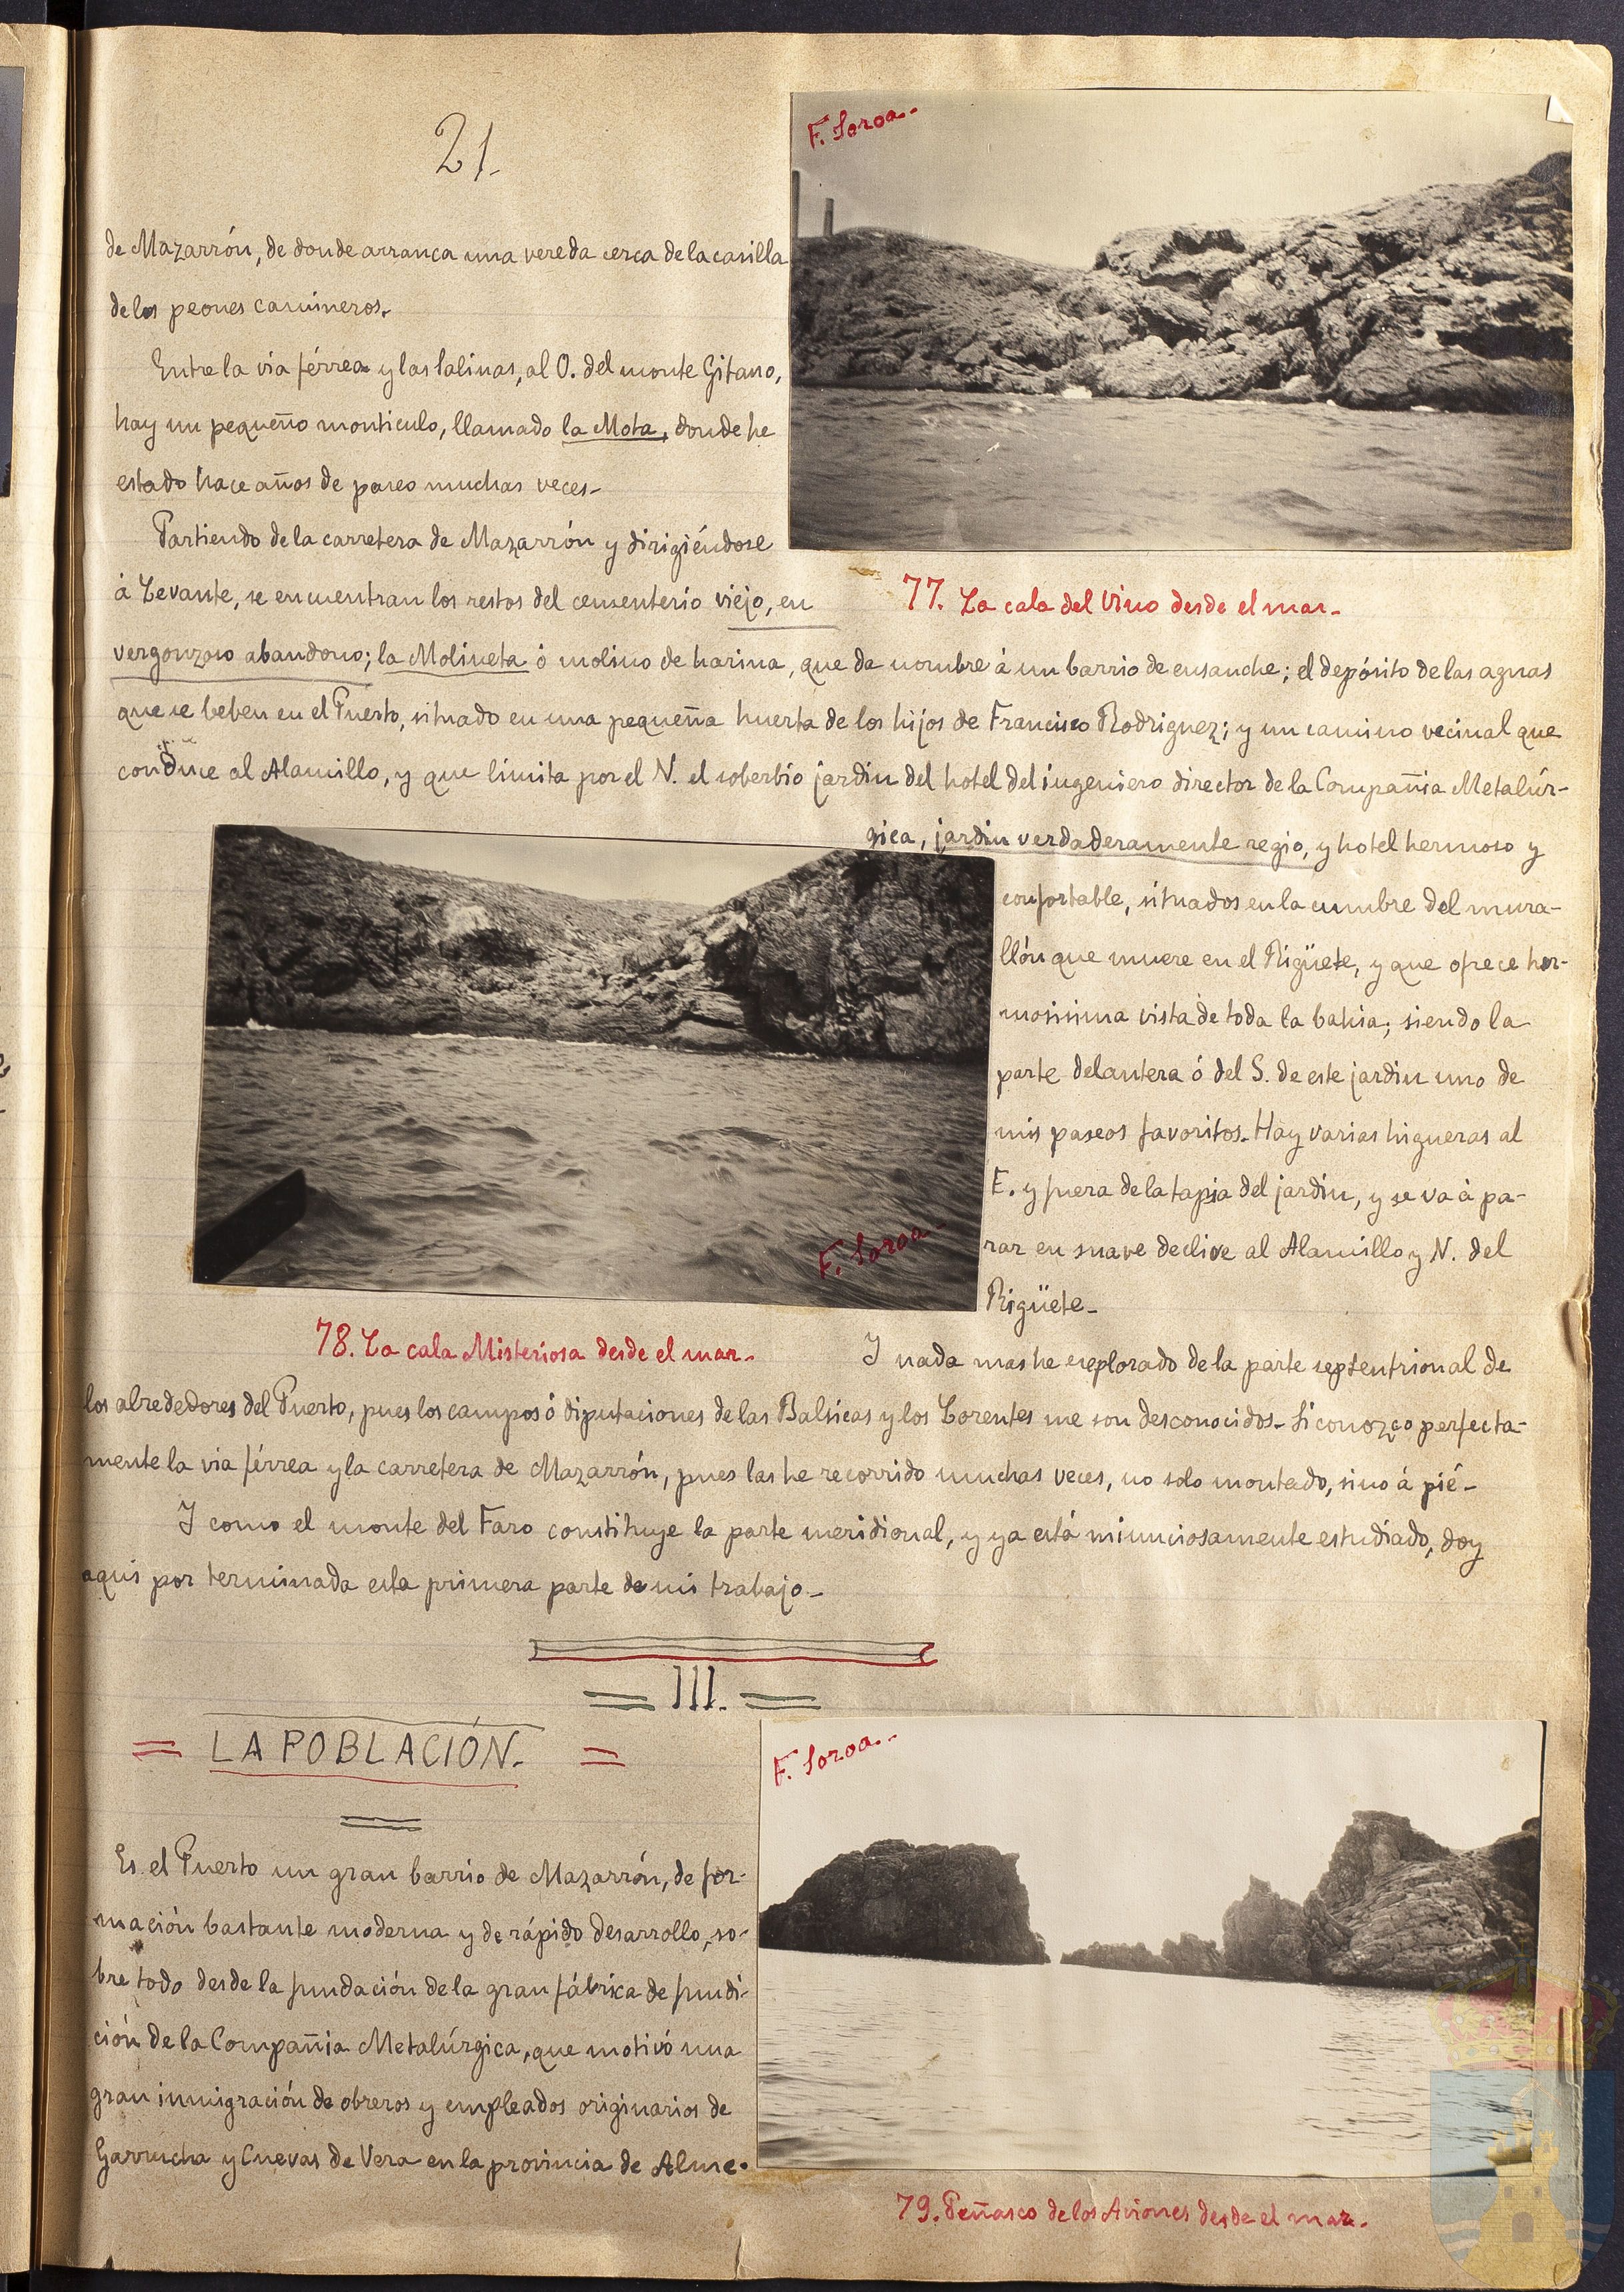 21.
F. Soroa.-
de Mazarrón, de donde arranca una vereda cerca de la casilla
de los peones camineros.
Entre la via férrea y las salinas, al O. del monte Gitano,
hay un pequeño monticulo, llamado la Mota, donde he
estado hace años de paseo muchas veces.
Partiendo de la carretera de Mazarrón y dirigiéndose
á Levante, se encuentran los restos del cementerio viejo, en
77. La cala del Vino desde el mar.
vergonzoso abandono; la Molineta ó molino de harina, que da nombre á un barrio de ensanche; el depósito de las aguas
que se beben en el Puerto, situado en una pequeña huerta de los hijos de Francisco Rodriguez; y un camino vecinal que
conduce al Alamillo, y que limita por el N. el soberbio jardin del hotel del ingeniero director de la Compañia Metalúr-
gica, jardin verdaderamente regio, y hotel hermoso y
confortable, situados en la cumbre del mura-
llón que muere en el Rigüete, y que ofrece her-
mosisima vista de toda la bahia; siendo la
parte delantera ó del S. de este jardin uno de
mis paseos favoritos. Hay varias higueras al
E. y fuera de la tapia del jardin, y se va á pa-
rar en suave declive al Alamillo y N. del
Rigüete.
F. Soroa-
78. La cala Misteriosa desde el mar.
Y nada mas he explorado de la parte septentrional de
los alrededores del Puerto, pues los campos ó diputaciones de las Balsicas y los Lorentes me son desconocidos. Si conozco perfecta-
mente la via férrea y la carretera de Mazarrón, pues las he recorrido muchas veces, no solo montado, sino á pié.
Y como el monte del Faro constituye la parte meridional, y ya está minuciosamente estudiado, doy
aqui por terminada esta primera parte de mi trabajo.
III.
LA POBLACIÓN.
F. Soroa.-
Es el Puerto un gran barrio de Mazarrón, de for-
mación bastante moderna y de rápido desarrollo, so-
bre todo desde la fundación de la gran fábrica de fundi-
ción de la Compañia Metalúrgica, que motivó una
gran inmigración de obreros y empleados originarios de
Garrucha y Cuevas de Vera en la provincia de Alme-
79. Peñasco de los Aviones desde el mar.